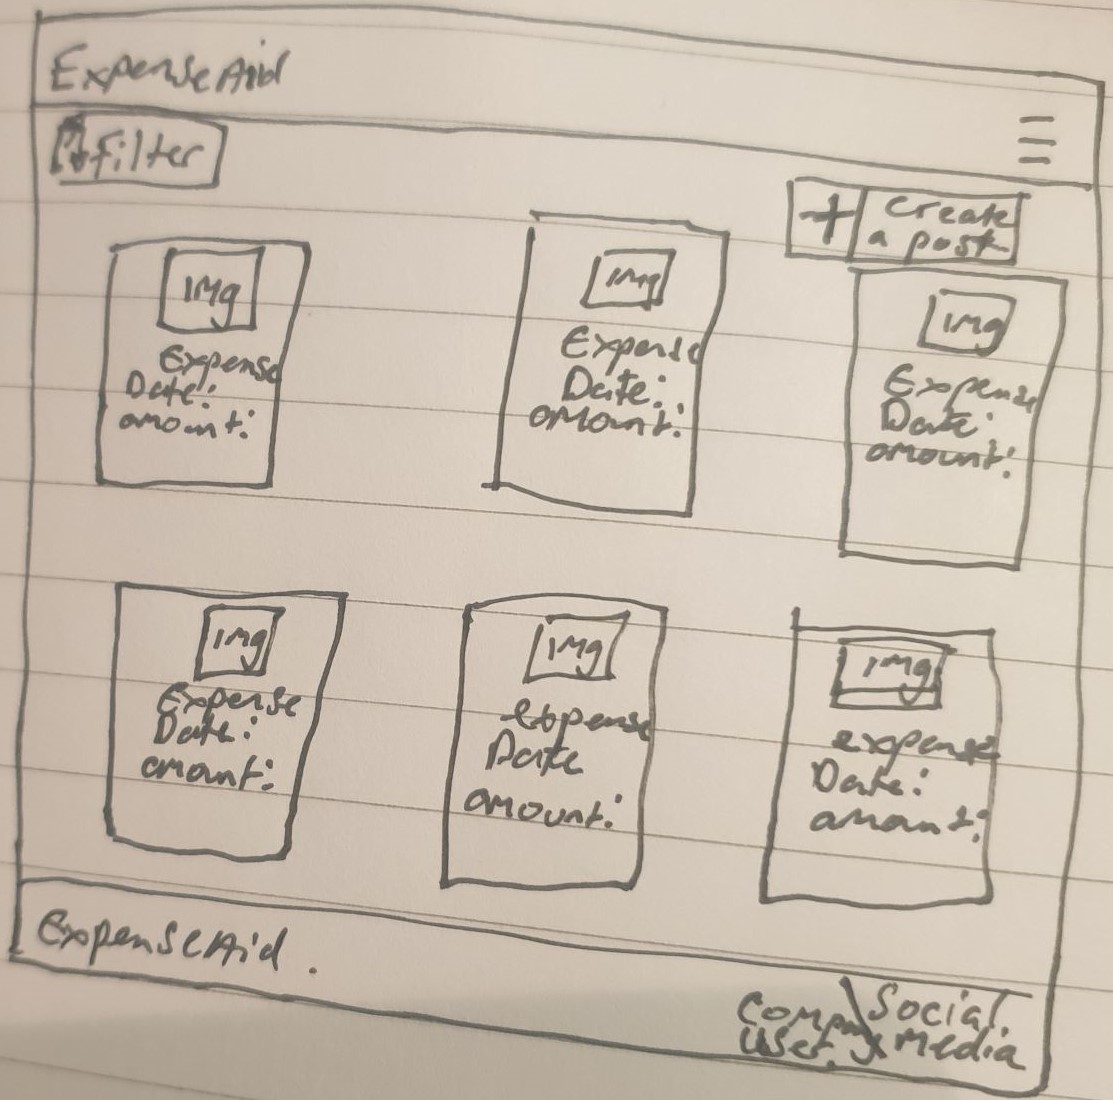 ExpenseAid
Filter
+ Create
a post
Img
Expense
Date:
amount:
Img
Expense
Date:
amount:
Img
Expense
Date:
amount:
Img
Expense
Date:
amount:
Img
expense
Date
amount:
Img
expense
Date:
amount:
ExpenseAid.
Social
Media
User